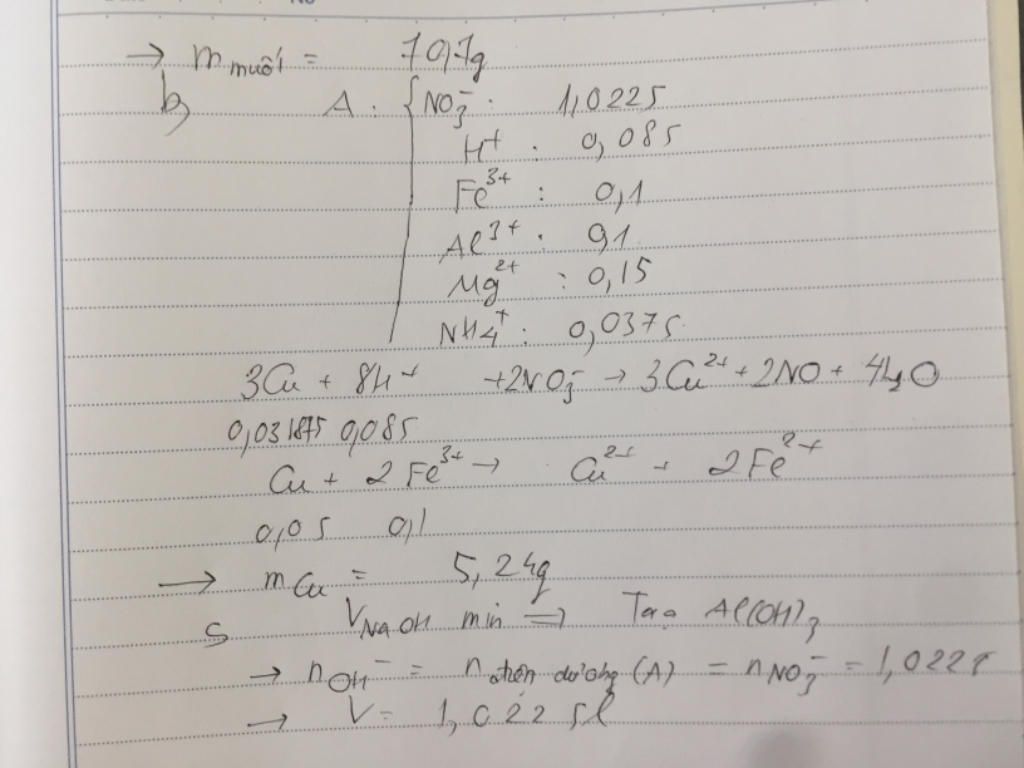 → m muối = 70,7g
b) A : { NO₃⁻ : 1,0225
H⁺ : 0,085
Fe³⁺ : 0,1
Al³⁺ : 0,1
Mg²⁺ : 0,15
NH₄⁺ : 0,0375
3Cu + 8H⁺ + 2NO₃⁻ → 3Cu²⁺ + 2NO + 4H₂O
0,031875 0,085
Cu + 2Fe³⁺ → Cu²⁺ + 2Fe²⁺
0,05 0,1
→ mCu = 5,24g
S V NaOH min ⇒ Tạo Al(OH)₃
→ nOH⁻ = n điện dương (A) = nNO₃⁻ = 1,0225
→ V = 1,0225l